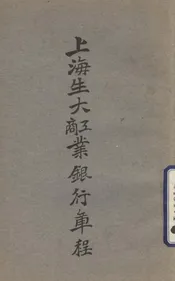 上海生大工商業銀行章程